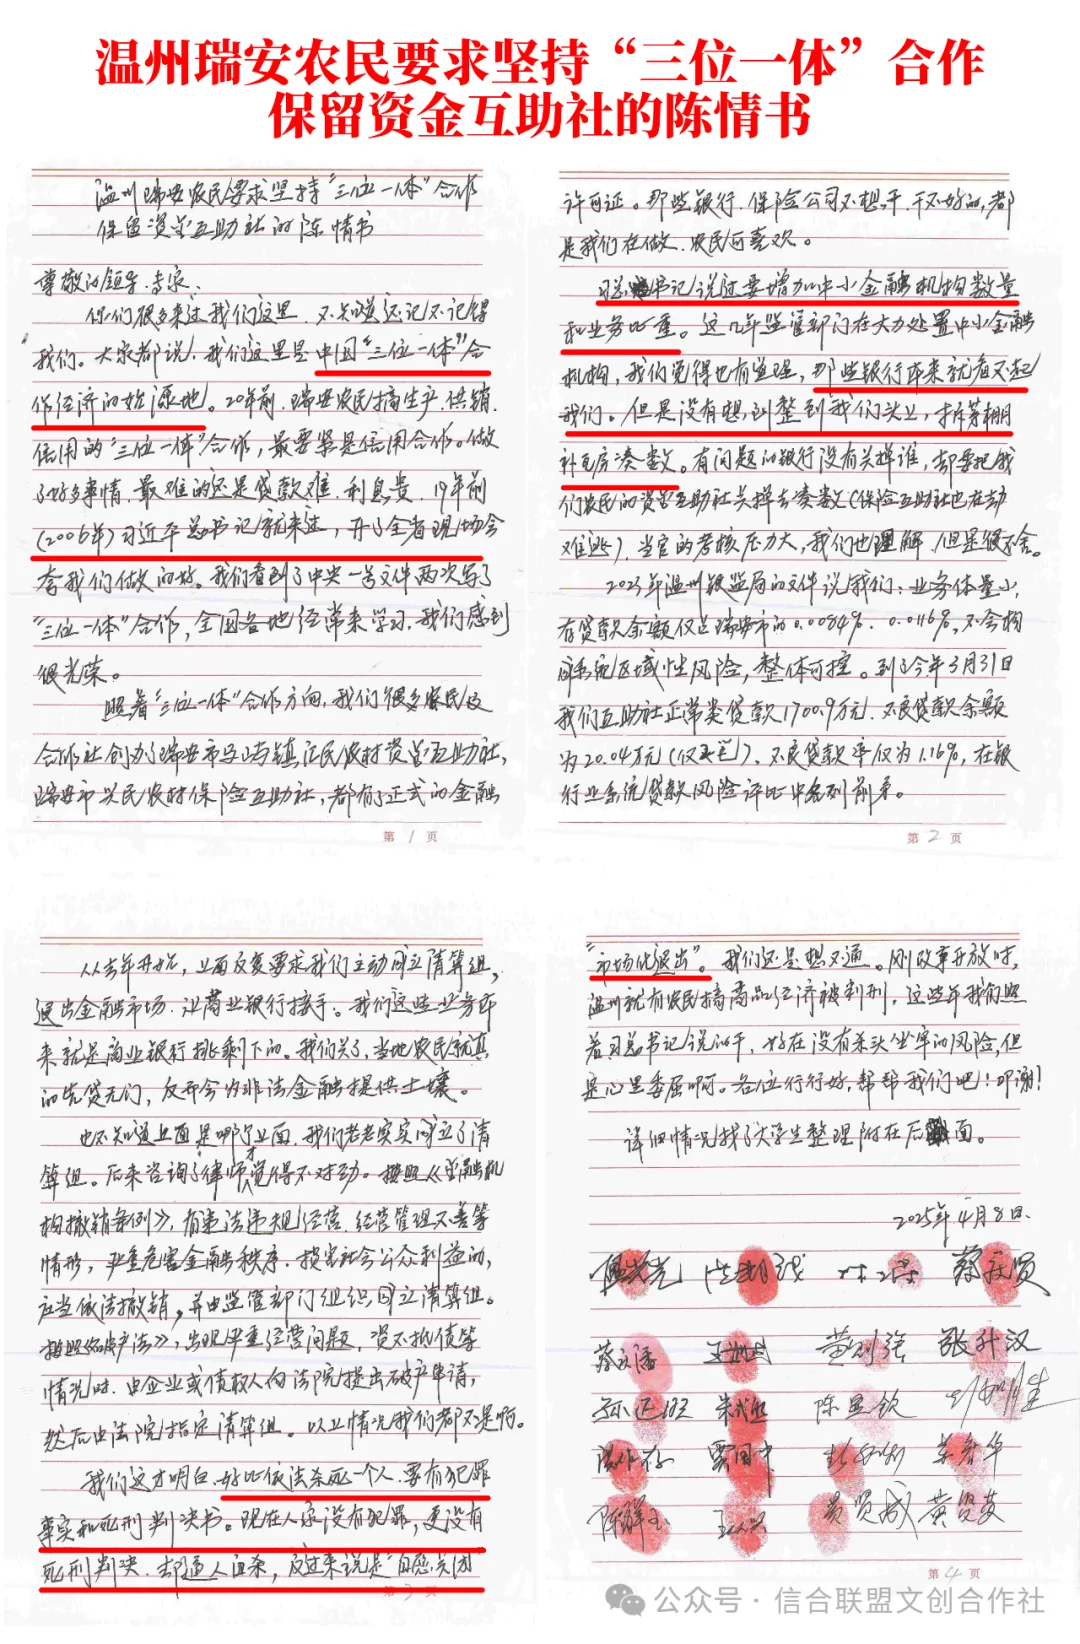 温州瑞安农民要求坚持“三位一体”合作
保留资金互助社的陈情书
温州瑞安农民要求坚持“三位一体”合作
保留资金互助社的陈情书
尊敬的领导、专家、
你们很多来过我们这里，不知道还记不记得
我们。大家都说，我们这里是中国“三位一体”合
作经济的始源地。20年前，瑞安农民搞生产、供销、
信用的“三位一体”合作，最要紧是信用合作。做
了好多事情，最难的还是贷款难、利息贵。19年前
(2006年)习近平总书记就来过，开了全省现场会
夸我们做的好。我们看到了中央一号文件两次写了
“三位一体”合作，全国各地经常来学习，我们感到
很光荣。
照着“三位一体”合作方向，我们很多农民及
合作社创办了瑞安市马屿镇汇民农村资金互助社，
瑞安市兴民农村保险互助社，都有了正式的金融
第1页
许可证。那些银行、保险公司不想干、干不好的，都
是我们在做，农民可喜欢。
习总书记说过要增加中小金融机构数量
和业务比重。这几年监管部门在大力处置中小金融
机构，我们觉得也有道理，那些银行本来就看不起
我们。但是没有想到整到我们头上，拆茅棚
补瓦房凑数。有问题的银行没有关掉谁，却要把我
们农民的资金互助社关掉去凑数(保险互助社也在劫
难逃)，当官的考核压力大，我们也理解，但是很不舍。
2023年温州银监局的文件说我们：业务体量小，
存贷款余额仅占瑞安市的0.0084%、0.0116%，不会构
成系统区域性风险，整体可控。到了今年3月31日
我们互助社正常类贷款1700.9万元，不良贷款余额
为20.04万元(仅)，不良贷款率仅为1.16%，在银
行业系统贷款风险评比中名列前茅。
第2页
从去年开始，上面反复要求我们主动成立清算组，
退出金融市场，让商业银行接手。我们这些业务本
来就是商业银行挑剩下的。我们关了，当地农民就真
的告贷无门，反而会为非法金融提供土壤。
也不知道上面是哪个上面，我们老老实实成立了清
算组。后来咨询了律师才觉得不对劲。按照《金融机
构撤销条例》，有违法违规经营、经营管理不善等
情形，严重危害金融秩序、损害社会公众利益的，
应当依法撤销，并由监管部门组织成立清算组。
按照《破产法》，出现严重经营问题，资不抵债等
情况时，由企业或债权人向法院提出破产申请，
然后由法院指定清算组。以上情况我们都不是啊。
我们这才明白，好比依法杀死一个人，要有犯罪
事实和死刑判决书。现在人家没有犯罪，更没有
死刑判决，却逼人自杀，反过来说是“自愿关闭”
第3页
“市场化退出”。我们还是想不通。刚改革开放时，
温州就有农民搞商品经济被判刑，这些年我们照
着习总书记说的干，好在没有杀头坐牢的风险，但
是心里委屈啊。各位行行好，帮帮我们吧！叩谢！
详细情况找了大学生整理附在后面。
2025年4月8日.
蔡庆贤
黄则强 张升汉
陈显钦
陈祥玉 黄贤成 黄贤英
第4页
公众号·信合联盟文创合作社